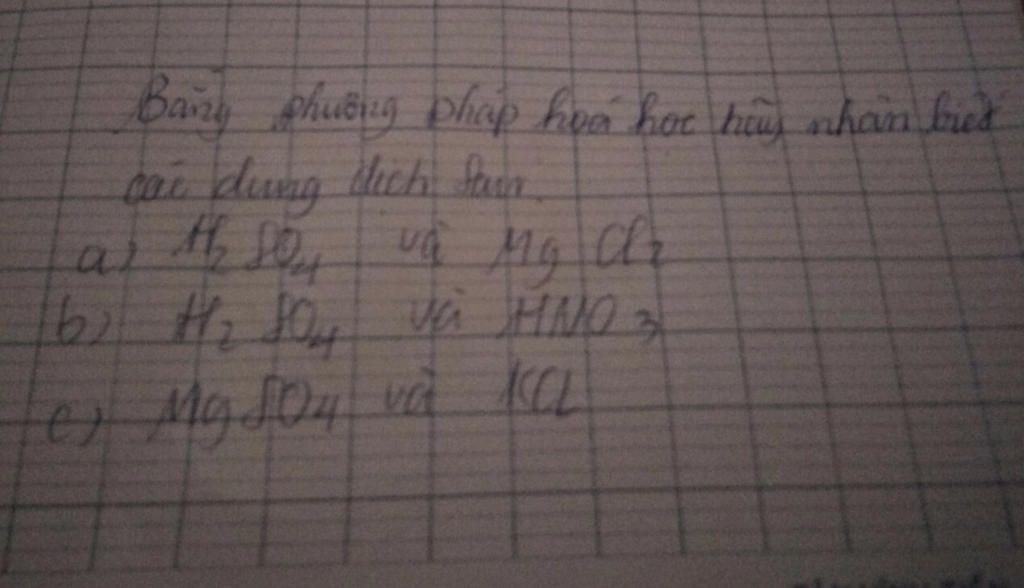 Bằng phương pháp hoá học hãy nhận biết
các dung dịch sau.
a) H2SO4 và MgCl2
b) H2SO4 và HNO3
c) MgSO4 và KCl